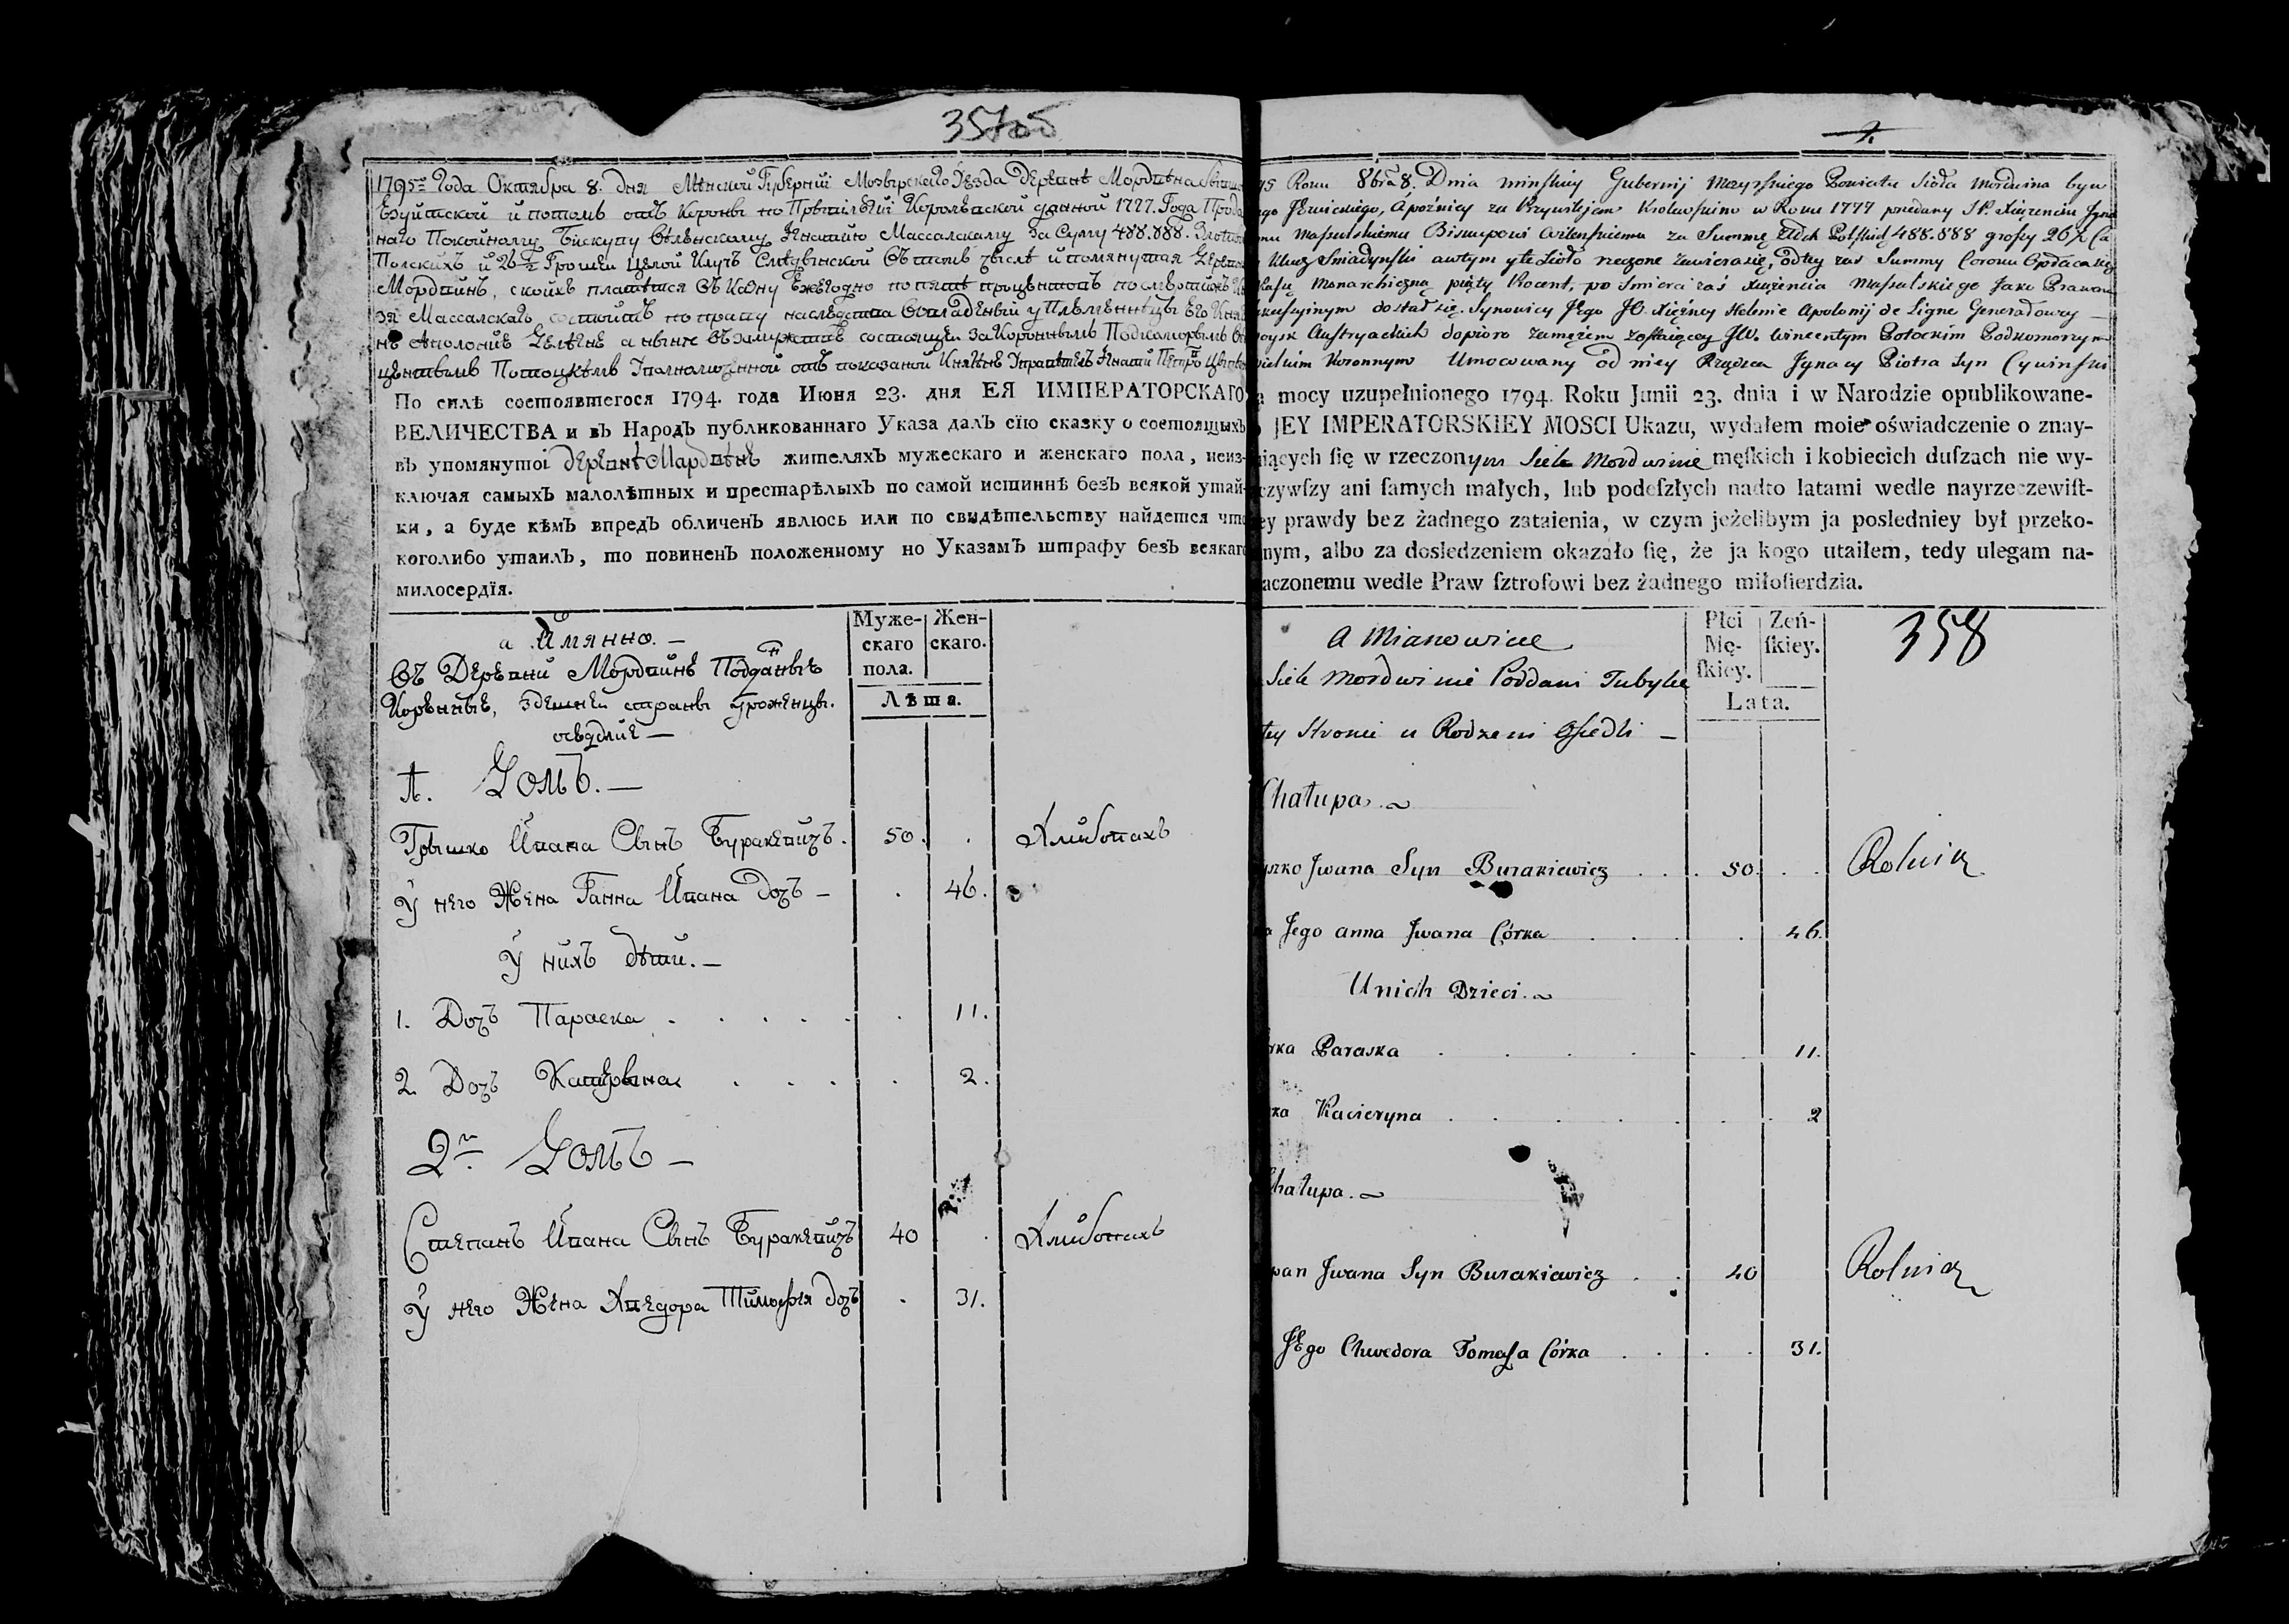 357об
1795го Года Октября 8. дня Минской Губернии Мозырскаго Уезда Деревне Мордвина бывш
Езуитской и потомъ отъ Короны по Привилегии Королевской данной 1777. Года Прода
наго Покойному Бискупу Виленскому Игнатию Массалскому За Сумму 488.888. Злотых
Полскихъ и 26 1/2 Грошей целой Ключъ Смедынской Въ томъ числе и помянутая Деревня
Мордвинъ, скоихъ платится Въ Казну Ежегодно по пяти процентовъ по смерти Кн
зя Массалскаго состоитъ по праву наследства Во владении у Племенницы Его Княги
не Аполоние Елене а ныне Въ замужстве состоящей За Короннымъ Подкоморымъ Ви
центымъ Потоцкимъ Уполномоченной отъ показаной Княгине Управитель Игнатий Петръ Цывин
По силѣ состоявшегося 1794. года Июня 23. дня ЕЯ ИМПЕРАТОРСКАГО
ВЕЛИЧЕСТВА и въ Народъ публикованнаго Указа далъ сїю сказку о состоящихъ
въ упомянутоі деревне Мардвине жителяхъ мужескаго и женскаго пола, неиз-
ключая самыхъ малолѣтных и престарѣлыхъ по самой истиннѣ безъ всякой утай-
ки, а буде кѣмъ впредъ обличенъ явлюсь или по свидѣтельству найдется что
коголибо утаилъ, то повиненъ положенному по Указамъ штрафу безъ всякаго
милосердїя.
а Имянно. —
Въ Деревни Мордвине Подданые
Кореныѣ, здешней страны уроженцы.
оседлие —
Муже-
скаго
пола.
Жен-
скаго.
Лѣта.
1. Домъ. —
Грышко Ивана Сынъ Буракевичъ. 50. . Хлибопахъ
У него Жена Ганна Ивана дочъ — . 46.
У нихъ дети. —
1. Дочъ Параска . . . . . 11.
2. Дочъ Катерына . . . . 2.
2й Домъ —
Степанъ Ивана Сынъ Буракевичъ 40 . Хлибопахъ
У него Жена Хведора Тимофея дочъ . 31.
1.
95 Roku 8bra 8. Dnia minskiey Gubernij Mozyrskiego Powiatu Sioła Mordwina byw
ego Jezuickiego, a poźniey za Przywilejem Krolewskim w Roku 1777 przedany J.P. Xiązenciu Igna
emu Massalskiemu Biskupowi Wilenskiemu za Summę Złtch Polskich 488.888 groszy 26 1/2 Ca
Klucz Smiadynski a w tym y te Sioło rzeczone zawiera się, od tey zas Summy Corocu Opłaca się
Kassę Monarchiczną piąty Procent, po smierci zaś Xiązencia Massalskiego Jako Prawem
sukcessyinym dostał się. Synowicy Jego JO. Xiężney Helenie Apolonij de Ligne Generałowey
Woysk Austryackich dopiero zamęziem zostaiącey JW. Wincentym Potockim Podkomorzym
Wielkim Koronnym Umocowany od niey Rządca Jgnacy Piotra Syn Cywinski
a mocy uzupełnionego 1794. Roku Junii 23. dnia i w Narodzie opublikowane-
o JEY IMPERATORSKIEY MOSCI Ukazu, wydałem moie oświadczenie o znay-
uiących ſię w rzeczonym Siele Mordwinie męſkich i kobiecich duſzach nie wy-
czywſzy ani ſamych małych, lub podeſzłych nadto latami wedle nayrzeczewiſt-
ey prawdy bez żadnego zataienia, w czym jeżelibym ja posledniey był przeko-
nym, albo za dosledzeniem okazało ſię, że ja kogo utaiłem, tedy ulegam na-
aczonemu wedle Praw ſztroſowi bez żadnego miłoſierdzia.
a Mianowicie
Siele Mordwinie Poddani Tubylce
tey Stronie u Rodzeni Osiedli —
Płci
Mę-
ſkiey.
Zeń-
ſkiey.
Lata.
358
Chałupa.
yszko Jwana Syn Burakiewicz . . . 50. . . Rolnik
a Jego anna Jwana Córka . . . . 46.
U nich Dzieci.
rka Paraska . . . . . . 11.
rka Kacieryna . . . . . . . 2
Chałupa.
pan Jwana Syn Burakiewicz . . 40 Rolnik
Jego Chwedora Tomasza Córka . . . . 31.